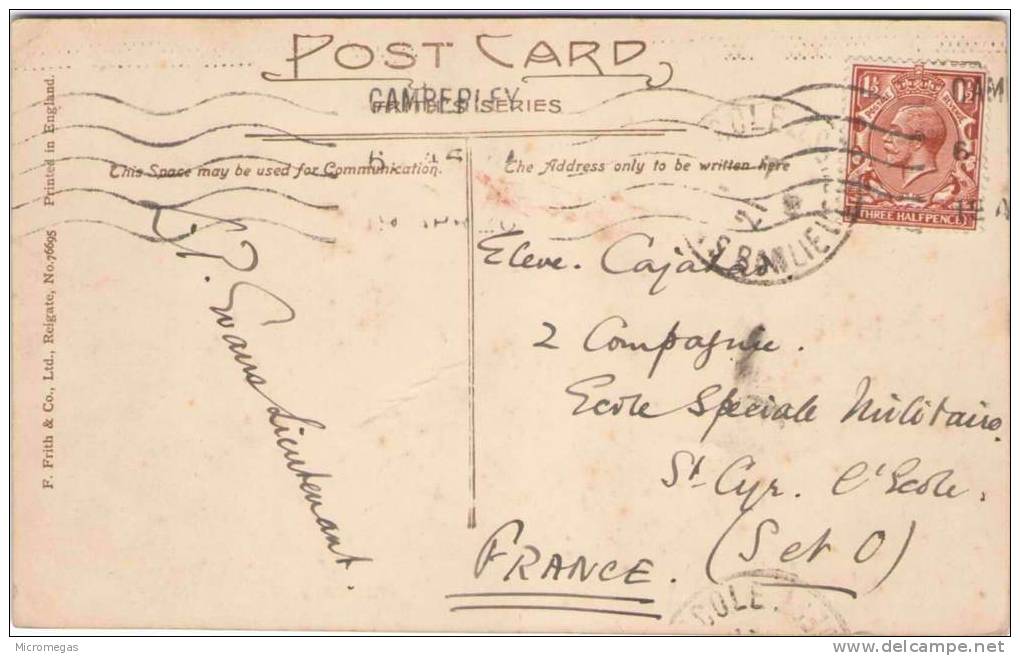 POST CARD
CAMBERLEY
FRITH'S SERIES
This Space may be used for Communication.
The Address only to be written here
F. Frith & Co., Ltd., Reigate, No. 76695 Printed in England.
Evans Lieutenant.
Eleve.
2 Compagnie.
Ecole Speciale Militaire
St Cyr. l'Ecole.
FRANCE. (S et O)
1½ 1½
POSTAGE REVENUE
THREE HALFPENCE
CAM
6
6 15
COLE
Micromegas
delcampe.net